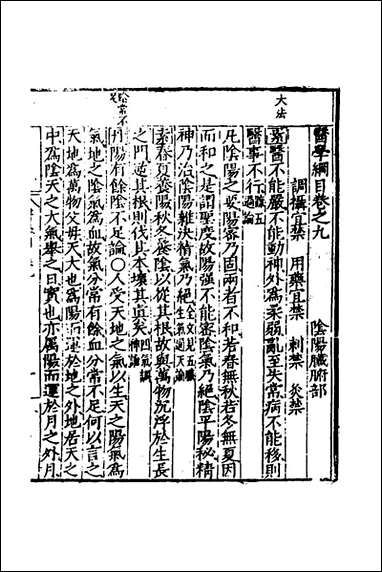 醫學綱目卷之九　陰陽臟腑部
調攝宜禁　用藥宜禁　刺禁　灸禁
大法
素醫不能嚴不能動神外為柔弱亂至失常病不能移則
醫事不行疏五過論
凡陰陽之要陽密乃固兩者不和若春無秋若冬無夏因
而和之是謂聖度故陽強不能密陰氣乃絕陰平陽秘精
神乃治陰陽離決精氣乃絕全文見五臟生氣通天論
素春夏養陽秋冬養陰以從其根故與萬物沉浮於生長
之門逆其根則伐其本壞其真矣四氣調神論
陰常不足
丹陽有餘陰不足論○人受天地之氣以生天之陽氣為
氣地之陰氣為血故氣分常有餘血分常不足何以言之
天地為萬物父母天大也為陽而運於地之外地居天之
中為陰天之大氣舉之日實也亦屬陽而運於月之外月